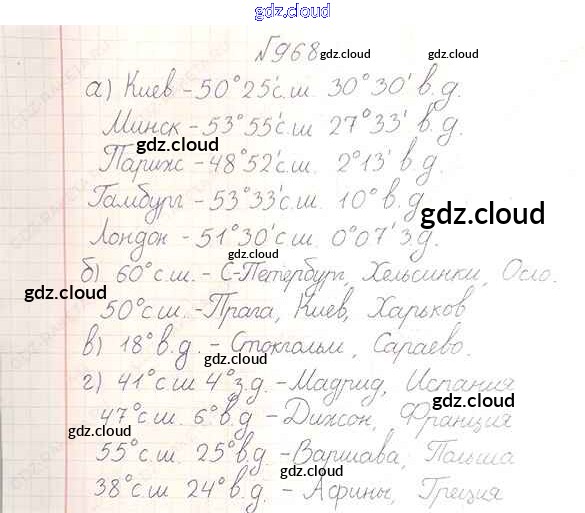 gdz.cloud
№968 gdz.cloud gdz.cloud
а) Киев - 50°25' с.ш. 30°30' в.д.
Минск - 53°55' с.ш. 27°33' в.д.
gdz.cloud
Париж - 48°52' с.ш. 2°13' в.д.
Гамбург - 53°33' с.ш. 10° в.д.
gdz.cloud
Лондон - 51°30' с.ш. 0°07' з.д.
gdz.cloud
б) 60° с.ш. - С-Петербург, Хельсинки, Осло.
gdz.cloud
50° с.ш. - Прага, Киев, Харьков
в) 18° в.д. - Стокгольм, Сараево.
gdz.cloud
г) 41° с.ш 4° з.д. - Мадрид, Испания
gdz.cloud
47° с.ш. 6° в.д - Дижон, Франция
gdz.cloud
55° с.ш. 25° в.д. - Варшава, Польша
gdz.cloud
38° с.ш 24° в.д. - Афины, Греция